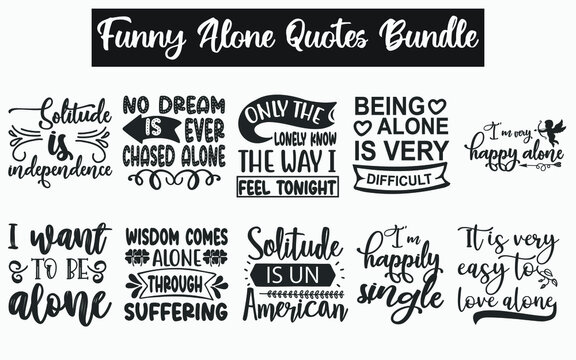 Funny Alone Quotes Bundle
Solitude
is
independence
NO DREAM
IS EVER
CHASED ALONE
ONLY THE
LONELY KNOW
THE WAY I
FEEL TONIGHT
BEING
ALONE
IS VERY
DIFFICULT
I'm very
happy alone
I want
TO BE
alone
WISDOM COMES
ALONE
THROUGH
SUFFERING
Solitude
IS UN
American
I'm
happily
single
It is very
easy to
love alone